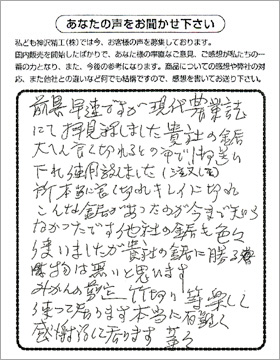 あなたの声をお聞かせ下さい
私ども神沢精工(株)では今、お客様の声を募集しております。
国内販売を開始したばかりで、あなたの率直なご意見、ご感想が私たちの一
番の力となり、また、今後の参考になります。商品についての感想や弊社の対
応、また他社との違いなど何でも結構ですので、感想を書いてお送り下さい。
前略 早速ですが現代農業誌
にて拝見致しました貴社の鋸
大へん良く切れるとの事で御送り
下され使用致しました(注文して)
所本当に良く切れキレイに切れ
こんな鋸があったのが今まで知ら
なかったです他社の鋸も色々
使いましたが貴社の鋸に勝る
物は無いと思います
みかんの剪定 竹切り 等楽しく
使って居ります本当に有難く
感謝致して居ります 草々